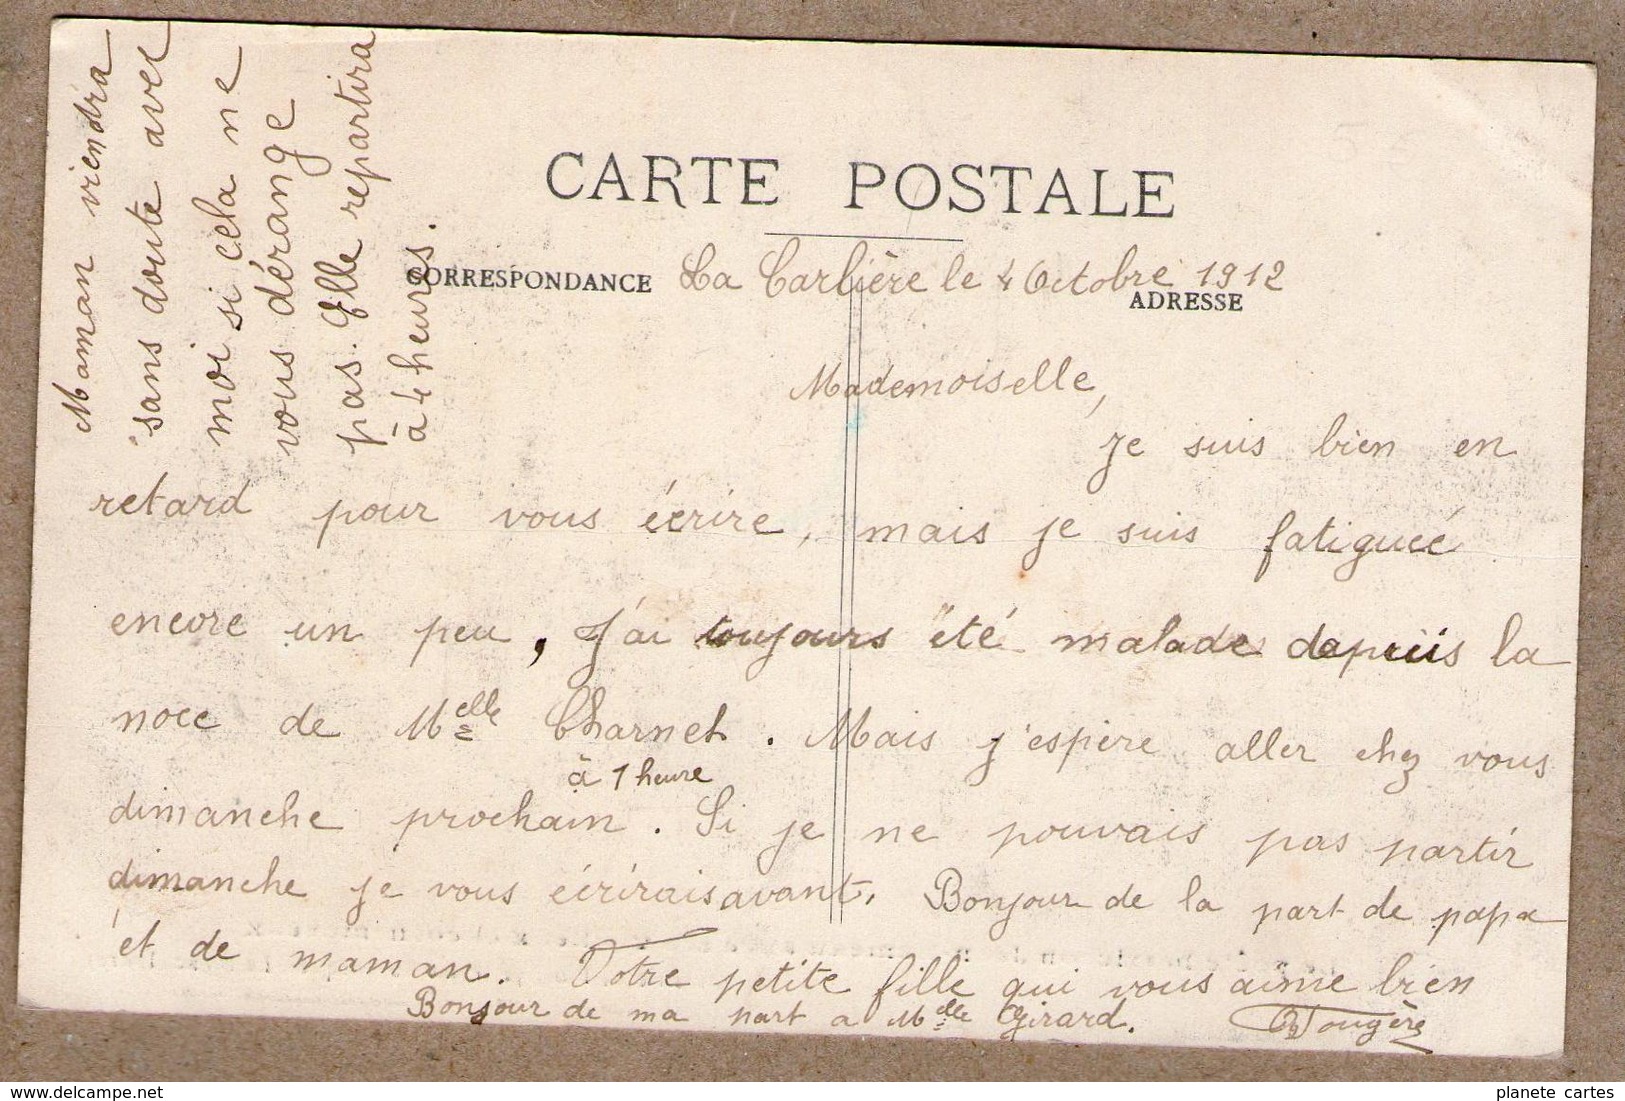 CARTE POSTALE
CORRESPONDANCE
ADRESSE
La Carlière le 4 Octobre 1912
Mademoiselle,
Je suis bien en
retard pour vous écrire, mais je suis fatiguée
encore un peu, J'ai toujours été malade depuis la
noce de Melle Charnet. Mais j'espère aller chez vous
à 1 heure
dimanche prochain. Si je ne pouvais pas partir
dimanche je vous écrirais avant. Bonjour de la part de papa
et de maman. Votre petite fille qui vous aime bien
Bonjour de ma part a Melle Girard.
Maman viendra
sans doute avec
moi si cela ne
vous dérange
pas. Elle repartira
à 4 heures.
planete cartes